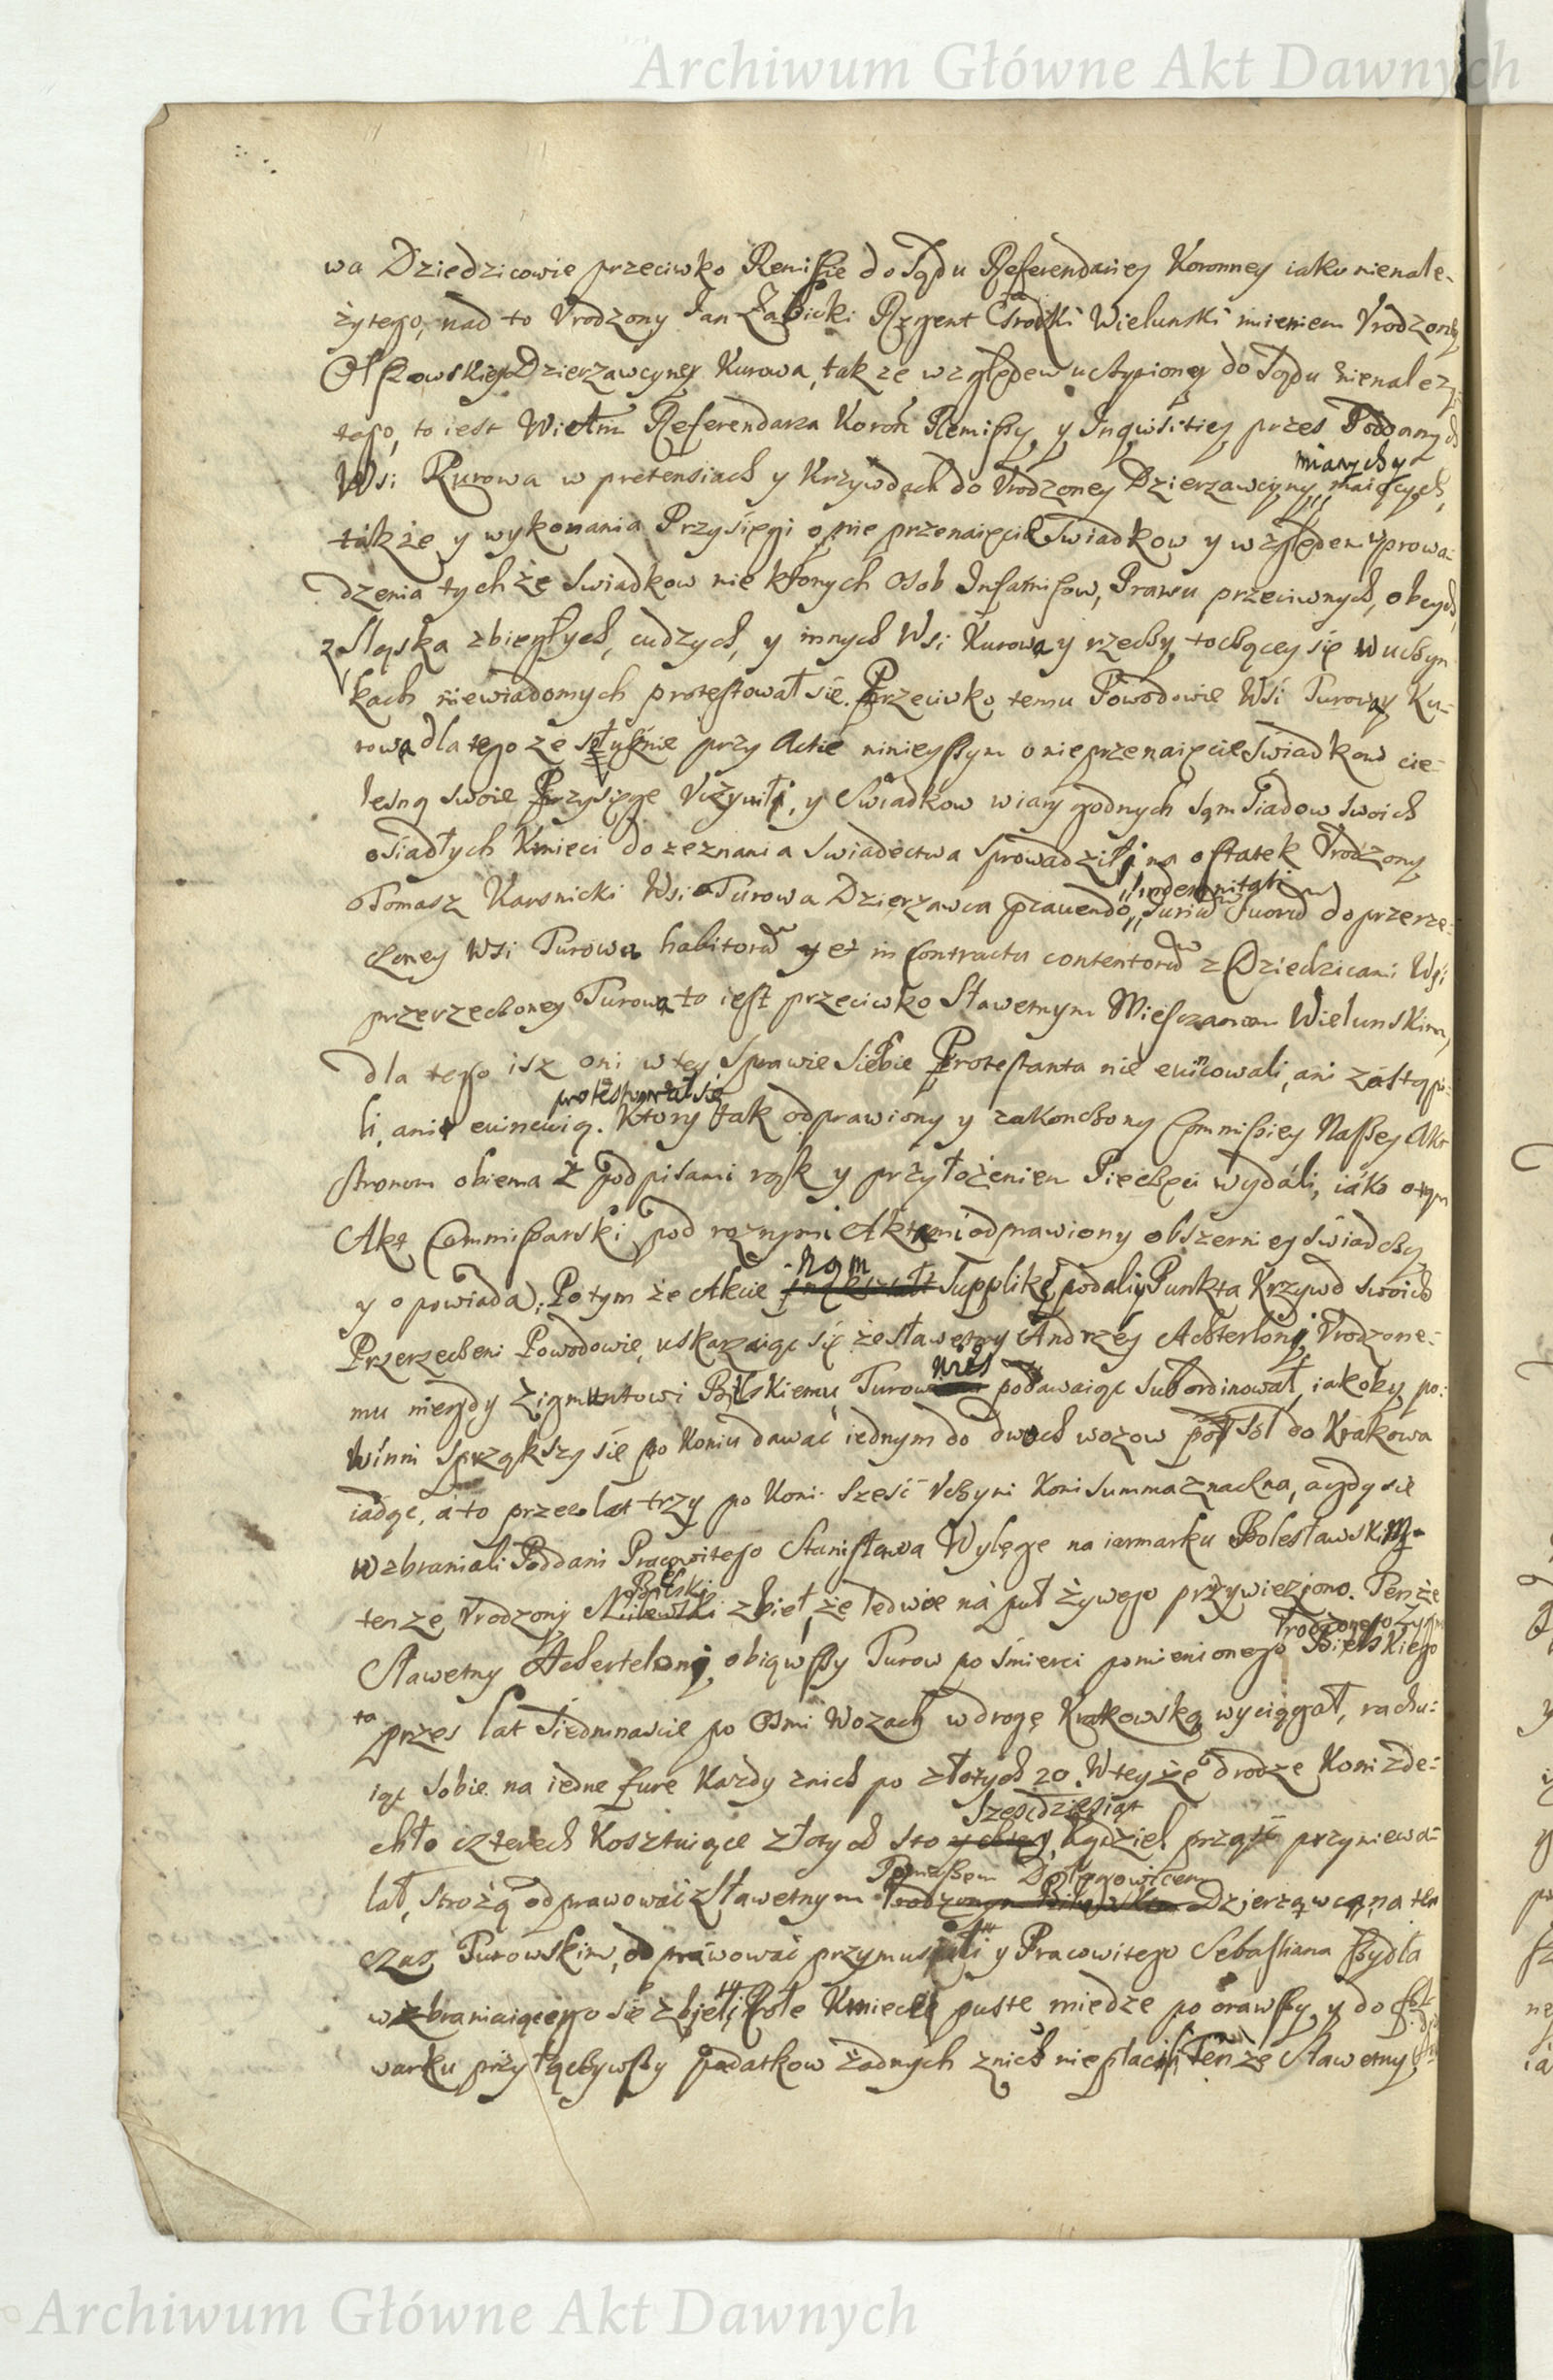 Archiwum Główne Akt Dawnych
wa Dziedzicowie przeciwko Remissie do Sądu Referendariey Koronney iako nienale-
żytego, nad to Vrodzony Jan Żabicki Regent Grodzki Wielunski imieniem Vrodzoney
Olszowskiey Dzierzawcyney Kurowa, także względem ustąpioney do Sądu nienalezy-
tego, to iest Wielm Referendarza Koron Remissy, y Inqwisitiey przes Poddanych
mianych y
Wsi Kurowa w pretensiach y Krzywdach do Vrodzoney Dzierzawcyny maiących,
także y wykonania Przysięgi o nie przenaięcie Swiadkow y względem wprowa-
dzenia tych że Swiadkow nie ktorych Osob Infamisow, Prawu przeciwnych, obcych
z Sląska zbiegłych, cudzych, y innych Wsi Kurowa y rzeczy toczącey się w uczyn
kach niewiadomych protestował się. Przeciwko temu Powodowie Wsi Turowa y Ku-
rowa dla tego że słusznie przy Actie ninieyszym o nieprzenaięcie Swiadkow cie-
lesną swoie Przysięgę Vczynili, y Swiadkow wiary godnych Sąmsiadow swoich
osiadłych Kmieci do zeznania swiadectwa sprowadzili, na ostatek Vrodzony
indemnitati
Tomasz Karsnicki Wsi Turowa Dzierzawca cavendo Juriu Suoru do przerze-
czoney Wsi Turowa habitoru et in Contractu contentoru z Dziedzicami Wsi
przerzeczoney Turowa to iest przeciwko Sławetnym Miesczanom Wielunskim,
dla tego isz oni w tey Sprawie Siebie Protestanta nie ewincowali, ani zastąpi-
protestował się
li, ani ewincuią. Ktory tak odprawiony y zakonczony Commissiey Naszey Akt
stronom obiema z podpisami rąk y przyłożeniem Pieczęci wydali, iako o tym
Akt Commissarski pod roznymi Aktami odprawiony obszerniey swiadczy
Nam
y opowiada. Po tym że Akcie Supplikę podali y Punkta Krzywd swoich
Przerzeczeni Powodowie, uskarzaiąc się że sławetny Andrzey Achterloni, Vrodzone-
nies
mu niegdy Zigmuntowi Bilskiemu, Turow podawaiąc Subordinował, iakoby po-
winni sprzągszy się po Koniu dawać iednym do dwoch wozow po sol do Krakowa
iadąc, a to przez lat trzy po Koni szesć Vczyni Koni summa znaczna, a gdy się
wzbraniali Poddani Pracowitego Stanisława Wylęgę na iarmarku Bolesławskim
Bielski
tenze Vrodzony zbieł, że ledwie na puł żywego przywieziono. Tenże
Vrodzonego Zyg
Sławetny Acherteloni, obiąwszy Turow po śmierci pomienionego Bielskiego
ta
przes lat Siedmnascie po Osmi Wozach w drogę Krakowską wyciągał, rachu-
iąc sobie na iedne furę Kazdy znich po złotych 20. W teyże drodze Koni zde-
szescdziesiąt
chło czterech Kosztuiące złotych sto Kądziel prząść przyniewa-
Tomaszem
lał, Strożą odprawować z Sławetnym Dzierzawcą na ten
czas Turowskim, odprawować przymuszali y Pracowitego Sebastiana Szydła
wzbraniaiącego się zbieli Role Kmiece puste, miedze poorawszy, y do fol-
warku przyłączywszy podatkow żadnych znich niepłacili Tenże Sławetny
Archiwum Główne Akt Dawnych